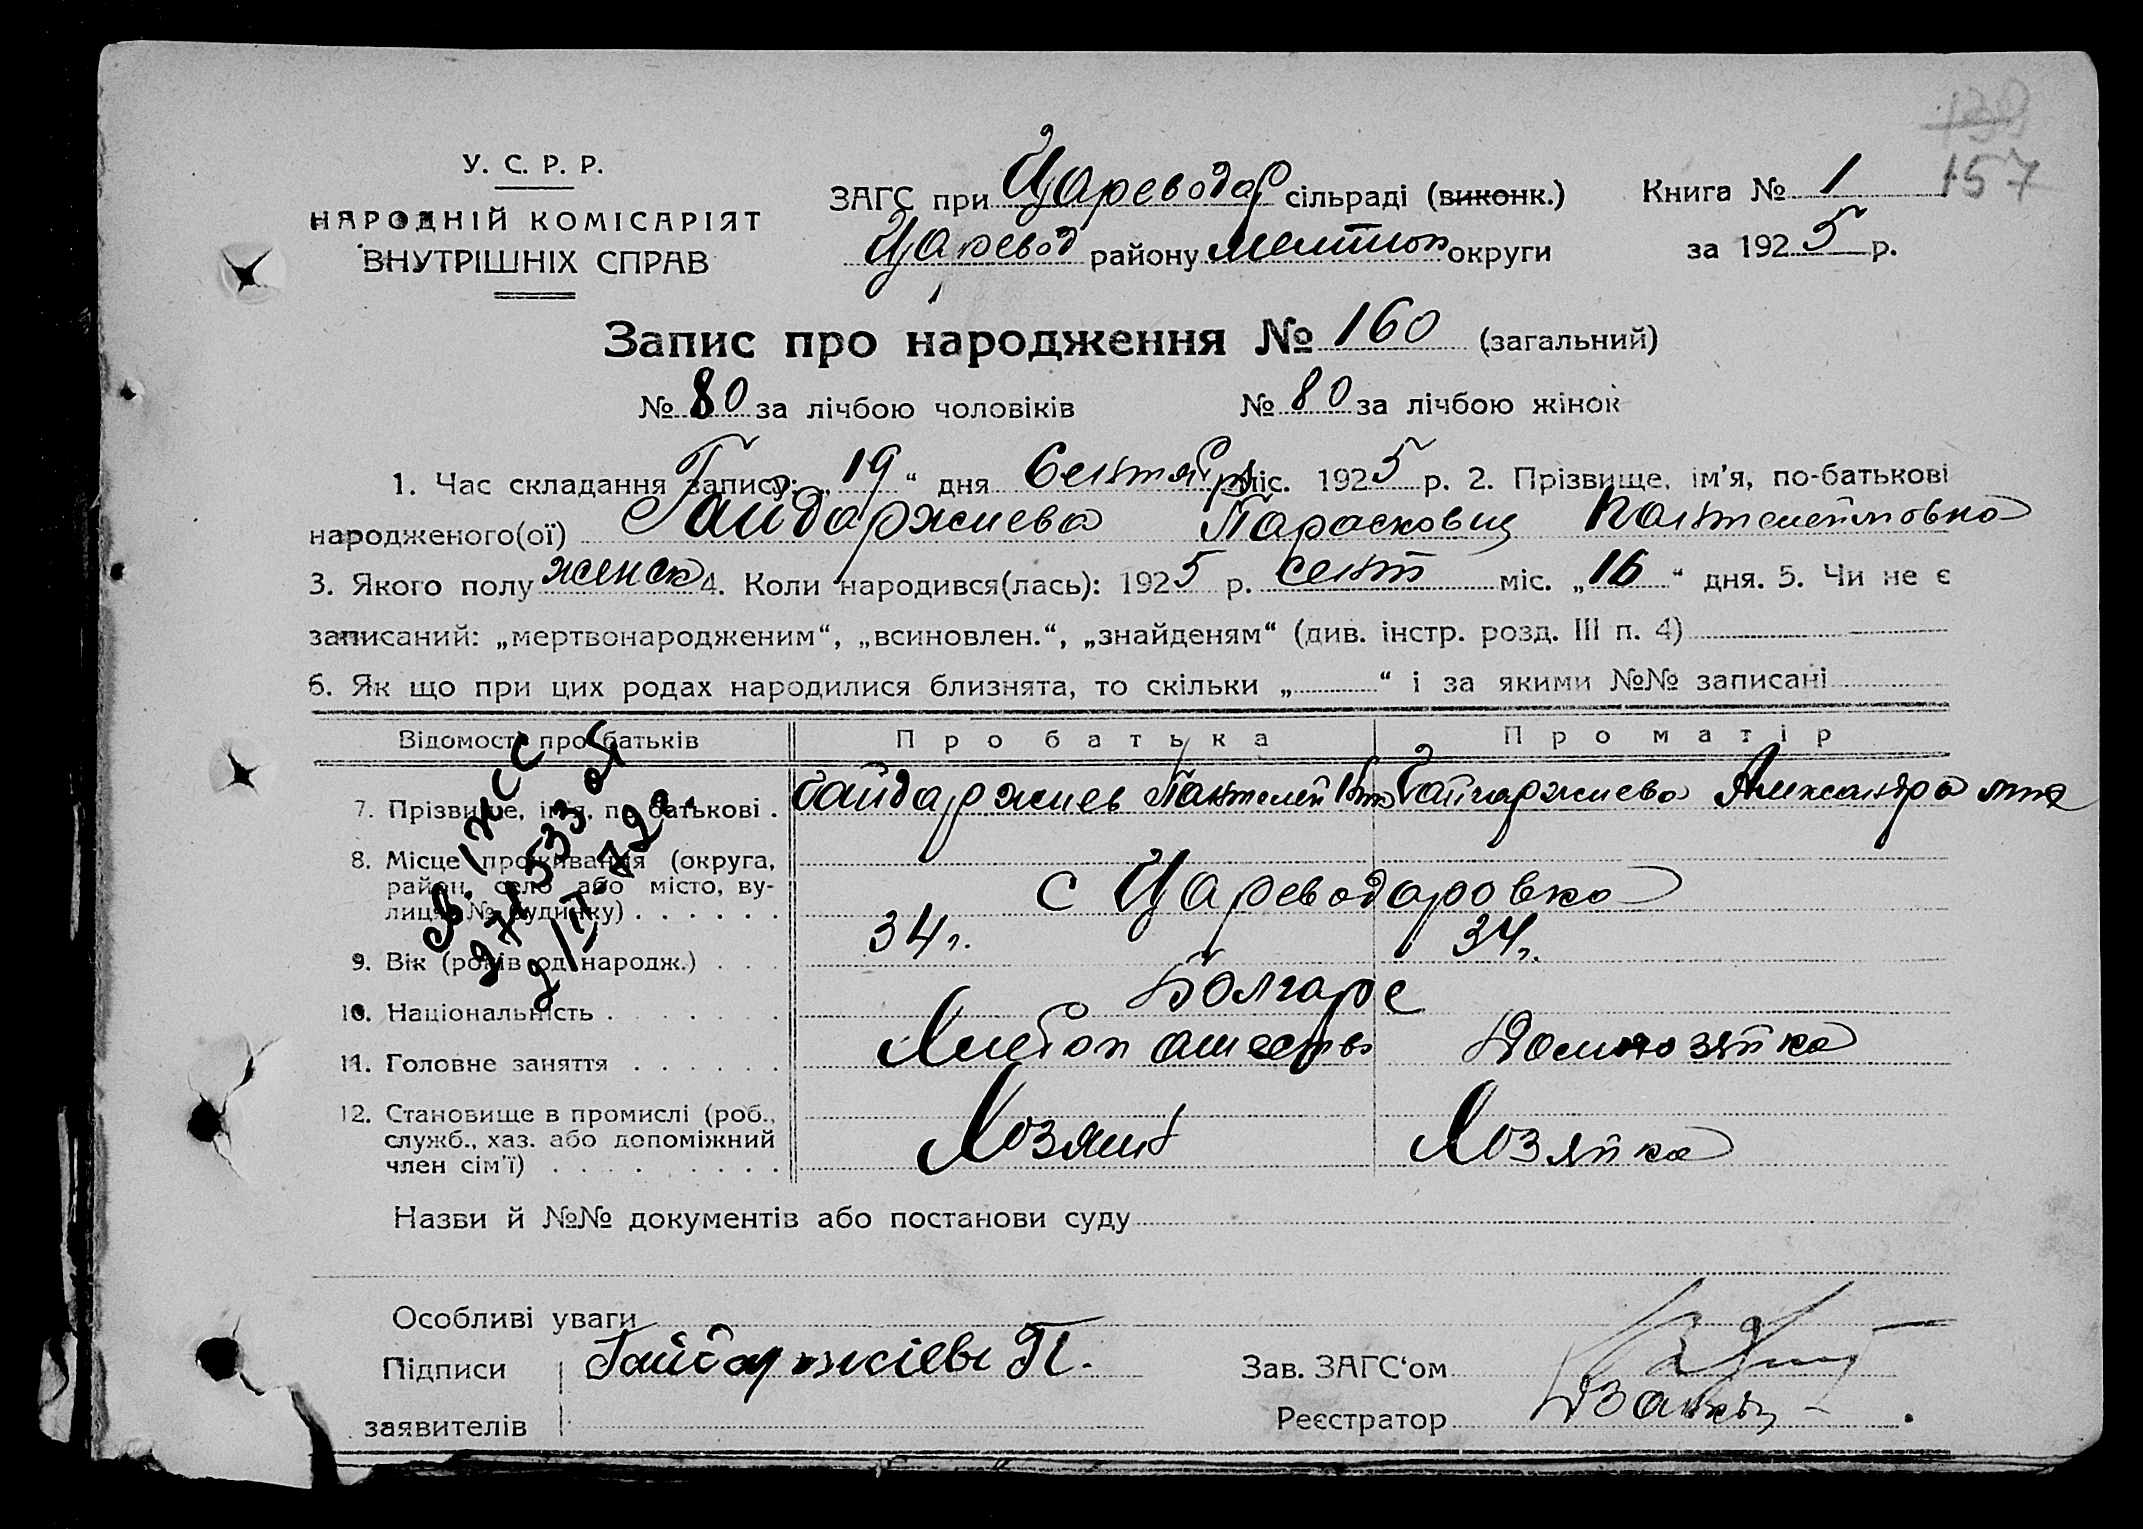 138
157
У. С. Р. Р.
НАРОДНІЙ КОМІСАРІЯТ
ВНУТРІШНІХ СПРАВ
ЗАГС при Цареводар сільраді (виконк.) Книга № 1
Царевод району Мелитоп округи за 1925 р.
Запис про народження № 160 (загальний)
№ 80 за лічбою чоловіків № 80 за лічбою жінок
1. Час складання запису: „19“ дня Сентября міс. 1925 р. 2. Прізвище, ім'я, по-батькові
народженого(ої) Гайдаржиева Парасковия Пантелеймовна
3. Якого полу женск 4. Коли народився(лась): 1925 р. сент міс. „16“ дня. 5. Чи не є
записаний: „мертвонародженим“, „всиновлен.“, „знайденям“ (див. інстр. розд. III п. 4)
6. Як що при цих родах народилися близнята, то скільки „ “ і за якими №№ записані
Відомості про батьків Про батька Про матір
7. Прізвище, ім'я, по батькові . Гайдаржиев Пантелей Гайдаржиева Александра
8. Місце проживання (округа,
район, село або місто, ву-
лиця, № будинку) . . . . . . с Цареводаровка
9. Вік (років од народж.) . . . 34 г. 34 г.
10. Національність . . . . . . . Болгаре
11. Головне заняття . . . . . . Хлебопашество Домхозяйка
12. Становище в промислі (роб.,
служб., хаз. або допоміжний
член сім'ї) . . . . . . . . . Хозяин Хозяйка
Назви й №№ документів або постанови суду
Особливі уваги
Підписи Гайдаржіевъ П. Зав. ЗАГС'ом
заявителів Реєстратор